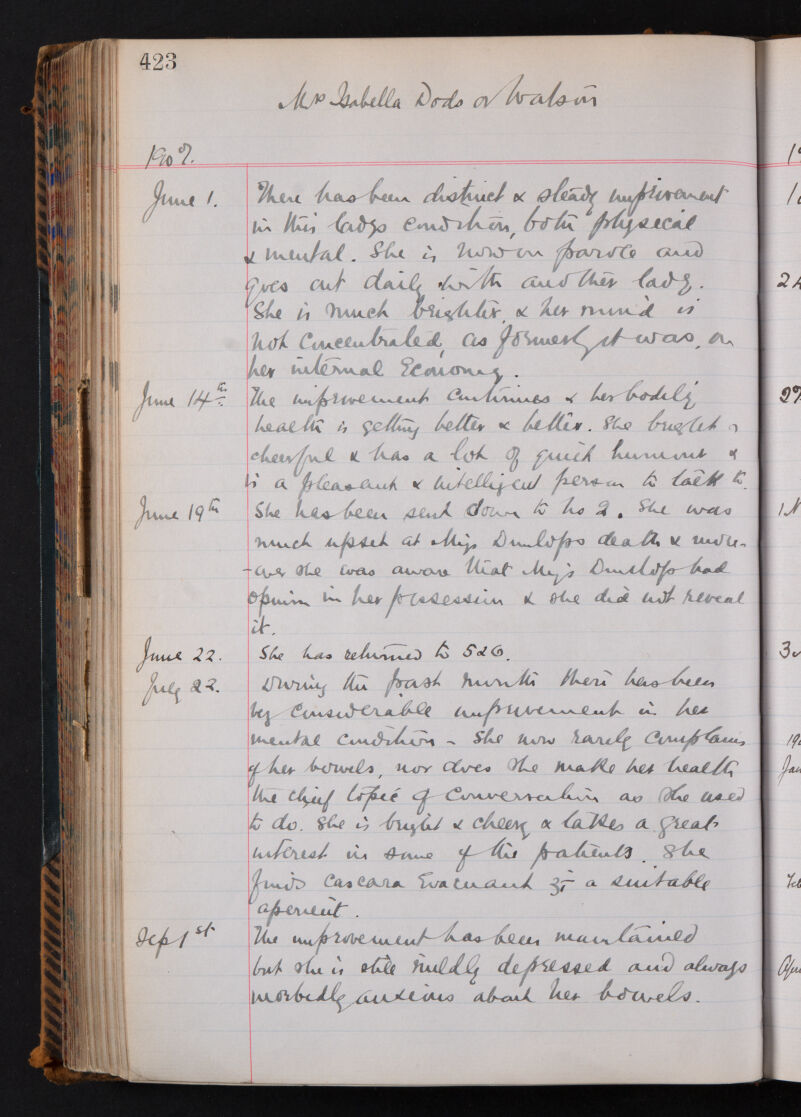 423
Mrs Isabella Dods or Watson
1907.
June 1. There has been distinct & steady improvement
in this ladys condition, both physical
& mental. She is now on parole and
goes out daily with another lady.
She is much brighter, & her mind is
not concentrated, as formerly it was, on
her internal Economy.
June 14th. The improvement continues & her bodily
health is getting better & better. She bright &
cheerful & has a lot of quiet humour &
is a pleasant & intelligent person to talk to.
June 19th She has been sent down to No 2. She was
much upset at Miss Dunlops death & more-
-over she was aware that Miss Dunlop had
opium in her possession & she did not reveal
it.
June 22. She has returned to
July 22. During the past month there has been
very considerable improvement in her
mental condition - She now rarely complains
of her bowels, nor does she make her health
the chief topic of conversation as she used
to do. She is bright & cheery & takes a great
interest in some of the patients. She
finds Cascara Evacuant ʒi a suitable
aperient.
Sep 1st The improvement has been maintained
but she is still mildly depressed and always
morbidly anxious about her bowels.